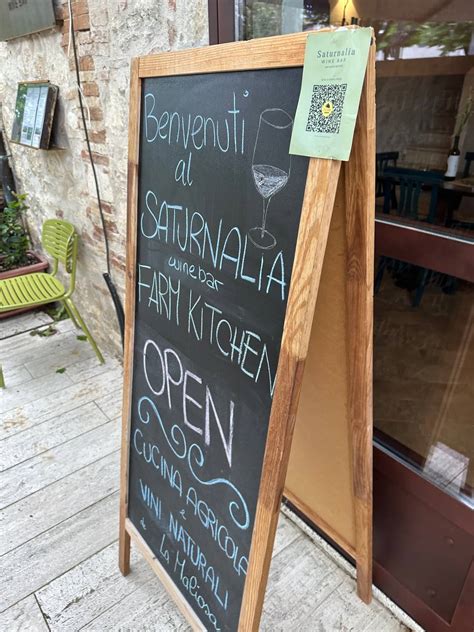 Saturnalia
WINE BAR
Benvenuti
al
SATURNALIA
winebar
FARM KITCHEN
OPEN
CUCINA AGRICOLA
e
VINI NATURALI
de La Maliosa